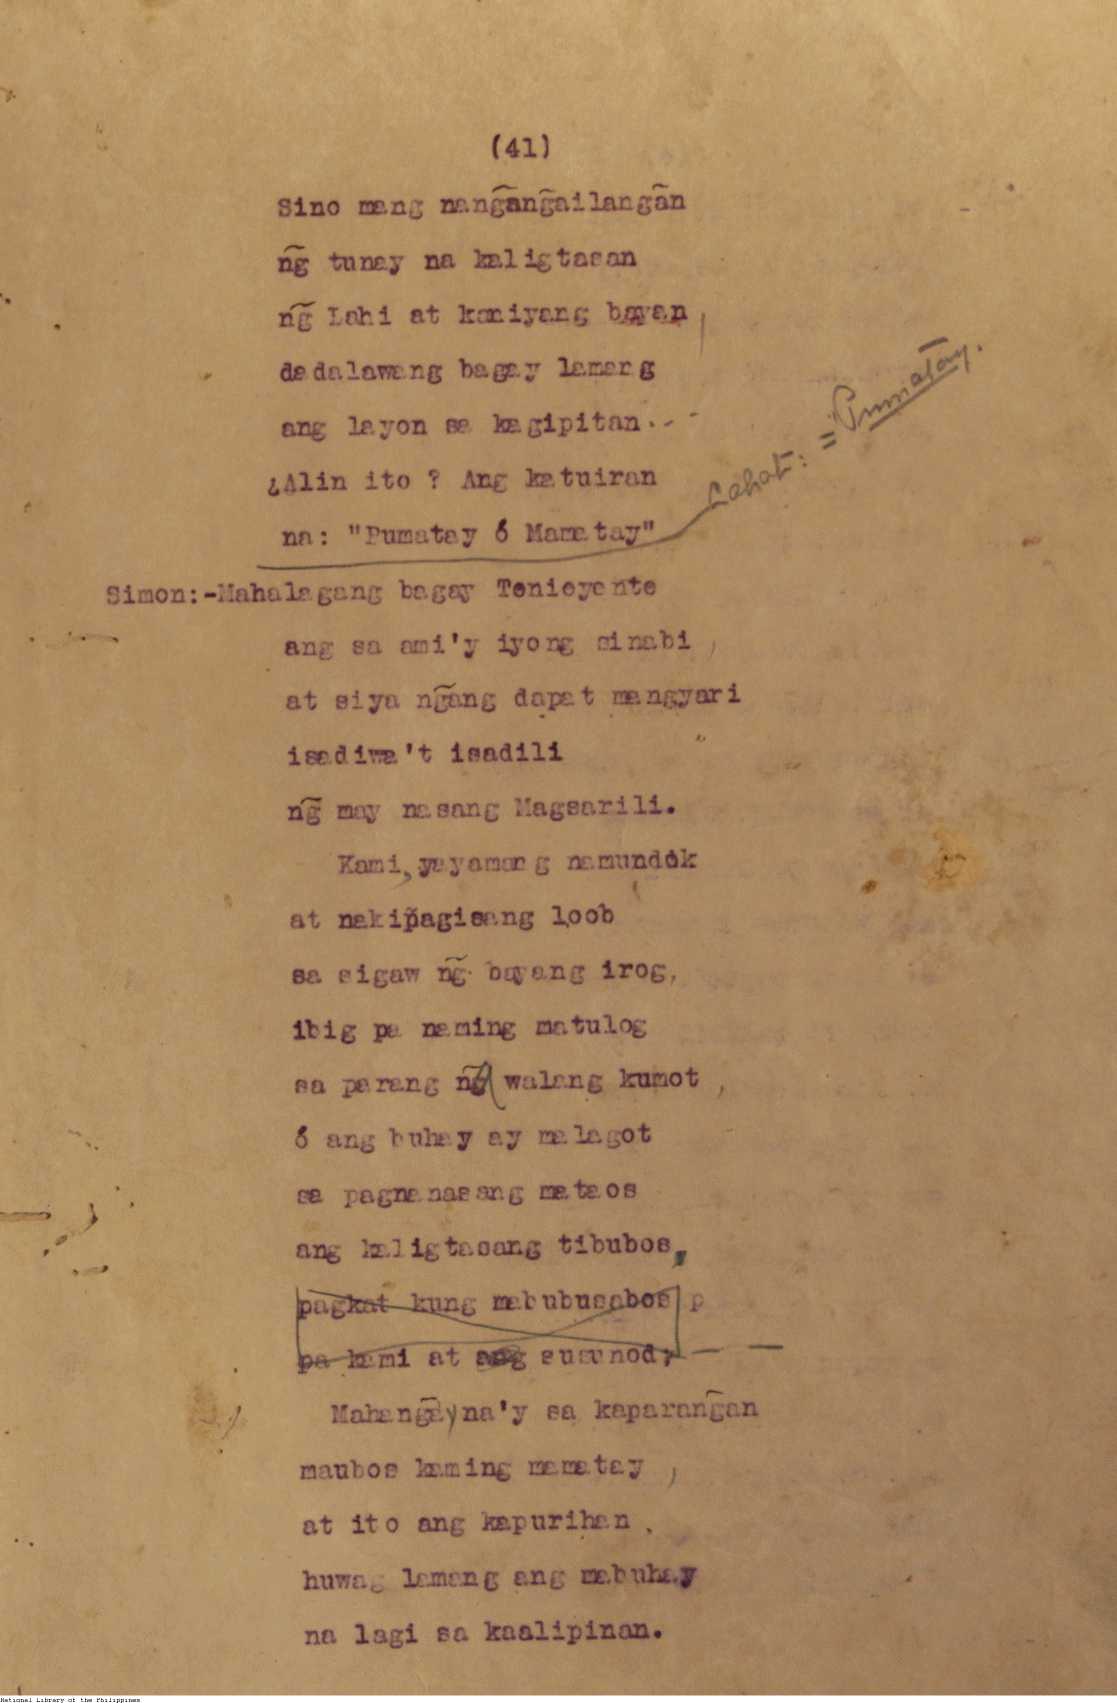 (41)
Sino mang nang̃ang̃ailang̃an
ng̃ tunay na kaligtasan
ng̃ Lahi at kaniyang bayan,
dadalawang bagay lamang
ang layon sa kagipitan..-
¿Alin ito ? Ang katuiran
na: "Pumatay ó Mamatay"
Lahat: = Pumatay.
Simon:-Mahalagang bagay Tenieyente
ang sa ami'y iyong sinabi ,
at siya ng̃ang dapat mangyari
isadiwa't isadili
ng̃ may nasang Magsarili.
Kami, yayamang namundok
at nakipagisang loob
sa sigaw ng̃ bayang irog,
ibig pa naming matulog
sa parang ng̃ walang kumot ,
ó ang buhay ay malagot
sa pagnanasang mataos
ang kaligtasang tibubos,
pagkat kung mabubusabos
pa kami at ang susunod; — —
Mahang̃ay na'y sa kaparang̃an
maubos kaming mamatay ,
at ito ang kapurihan ,
huwag lamang ang mabuhay
na lagi sa kaalipinan.
National Library of the Philippines